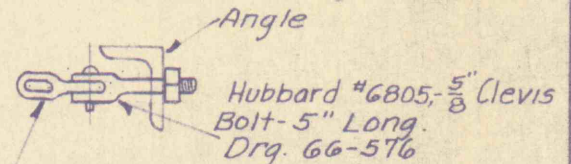 Angle
Hubbard #6805,-5/8" Clevis
Bolt-5" Long.
Drg. 66-576